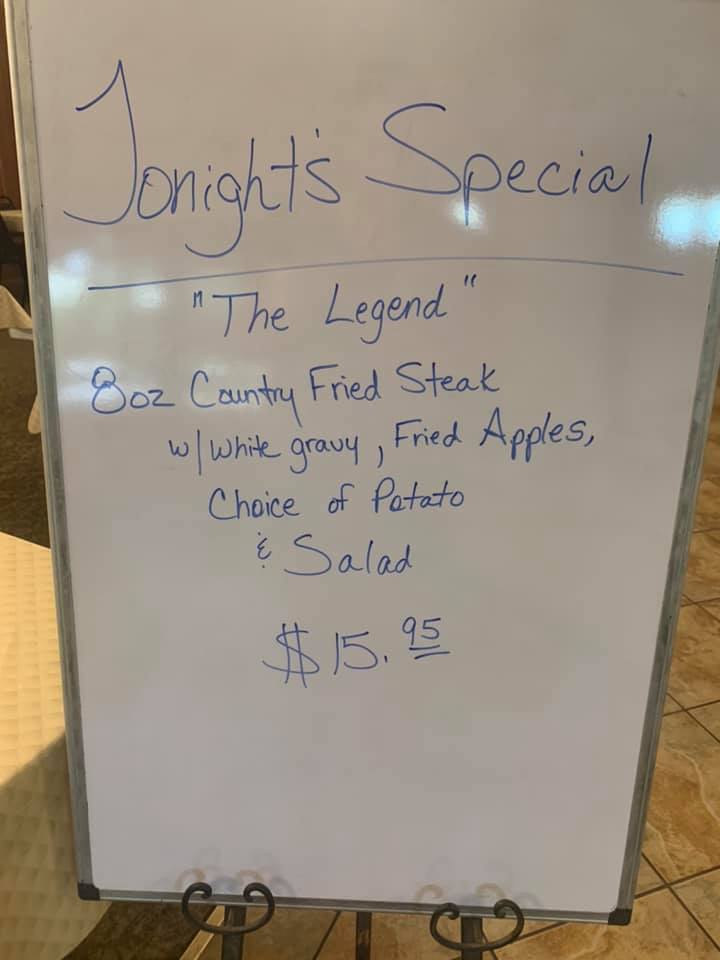 Tonight's Special
"The Legend"
8oz Country Fried Steak
w/ white gravy, Fried Apples,
Choice of Potato
& Salad
$15.95